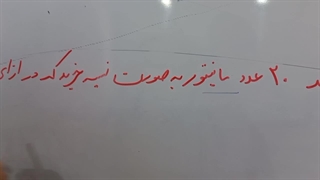 د ۲۰ عدد مانیتور به صورت نسیه خرید که در ازای